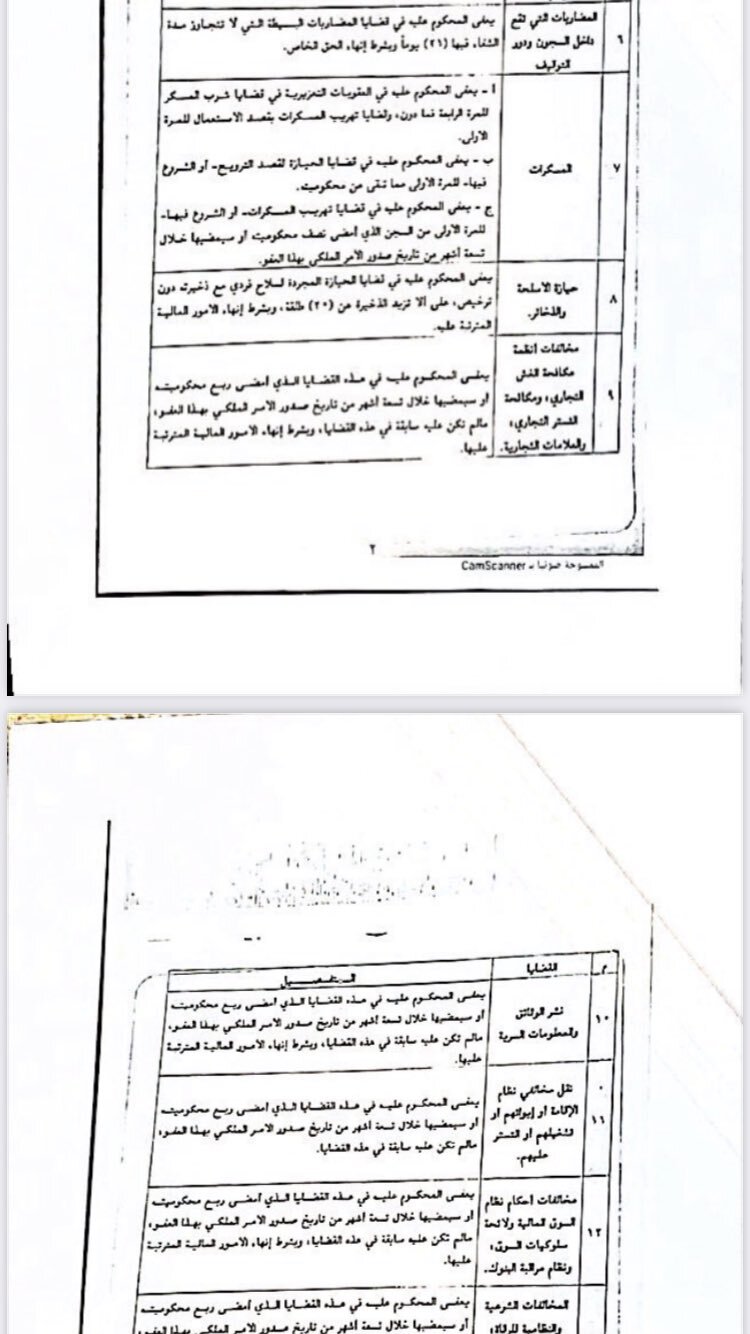 المضاربات التي تقع
داخل السجون ودور
التوقيف
٦
يعفى المحكوم عليه في قضايا المضاربات البسيطة التي لا تتجاوز مدة
الشفاء فيها (٢١) يوماً ويشرط إنهاء الحق الخاص.
٧
المسكرات
أ - يعفى المحكوم عليه في العقوبات التعزيرية في قضايا شرب المسكر
للمرة الرابعة فما دون، وقضايا تهريب المسكرات بقصد الاستعمال للمرة
الأولى.
ب - يعفى المحكوم عليه في قضايا الحيازة لقصد الترويج- أو الشروع
فيها- للمرة الأولى مما تبقى من محكوميته.
ج - يعفى المحكوم عليه في قضايا تهريب المسكرات- أو الشروع فيها-
للمرة الأولى من السجن الذي أمضى نصف محكوميته أو سيمضيها خلال
تسعة أشهر من تاريخ صدور الأمر الملكي بهذا العفو.
٨
حيازة الأسلحة
والذخائر.
يعفى المحكوم عليه في قضايا الحيازة المجردة لسلاح فردي مع ذخيرته دون
ترخيص، على ألا تزيد الذخيرة عن (٢٠) طلقة، ويشرط إنهاء الأمور المالية
المترتبة عليه.
٩
مخالفات أنظمة
مكافحة الغش
التجاري، ومكافحة
التستر التجاري،
والعلامات التجارية.
يعفى المحكوم عليه في هذه القضايا الذي أمضى ربع محكوميته
أو سيمضيها خلال تسعة أشهر من تاريخ صدور الأمر الملكي بهذا العفو،
مالم تكن عليه سابقة في هذه القضايا، ويشرط إنهاء الأمور المالية المترتبة
عليها.
٢
الممسوحة ضوئيا بـ CamScanner
م
القضايا
التفصيل
١٠
نشر الوثائق
والمعلومات السرية
يعفى المحكوم عليه في هذه القضايا الذي أمضى ربع محكوميته
أو سيمضيها خلال تسعة أشهر من تاريخ صدور الأمر الملكي بهذا العفو،
مالم تكن عليه سابقة في هذه القضايا، ويشرط إنهاء الأمور المالية المترتبة
عليها.
١١
نقل مخالفي نظام
الإقامة أو إيوائهم أو
تشغيلهم أو التستر
عليهم.
يعفى المحكوم عليه في هذه القضايا الذي أمضى ربع محكوميته
أو سيمضيها خلال تسعة أشهر من تاريخ صدور الأمر الملكي بهذا العفو،
مالم تكن عليه سابقة في هذه القضايا.
١٢
مخالفات أحكام نظام
السوق المالية ولائحة
سلوكيات السوق،
ونظام مراقبة البنوك.
يعفى المحكوم عليه في هذه القضايا الذي أمضى ربع محكوميته
أو سيمضيها خلال تسعة أشهر من تاريخ صدور الأمر الملكي بهذا العفو،
مالم تكن عليه سابقة في هذه القضايا، ويشرط إنهاء الأمور المالية المترتبة
عليها.
المخالفات الشرعية
والنظامية
يعفى المحكوم عليه في هذه القضايا الذي أمضى ربع محكوميته
أو سيمضيها خلال تسعة أشهر من تاريخ صدور الأمر الملكي بهذا العفو،